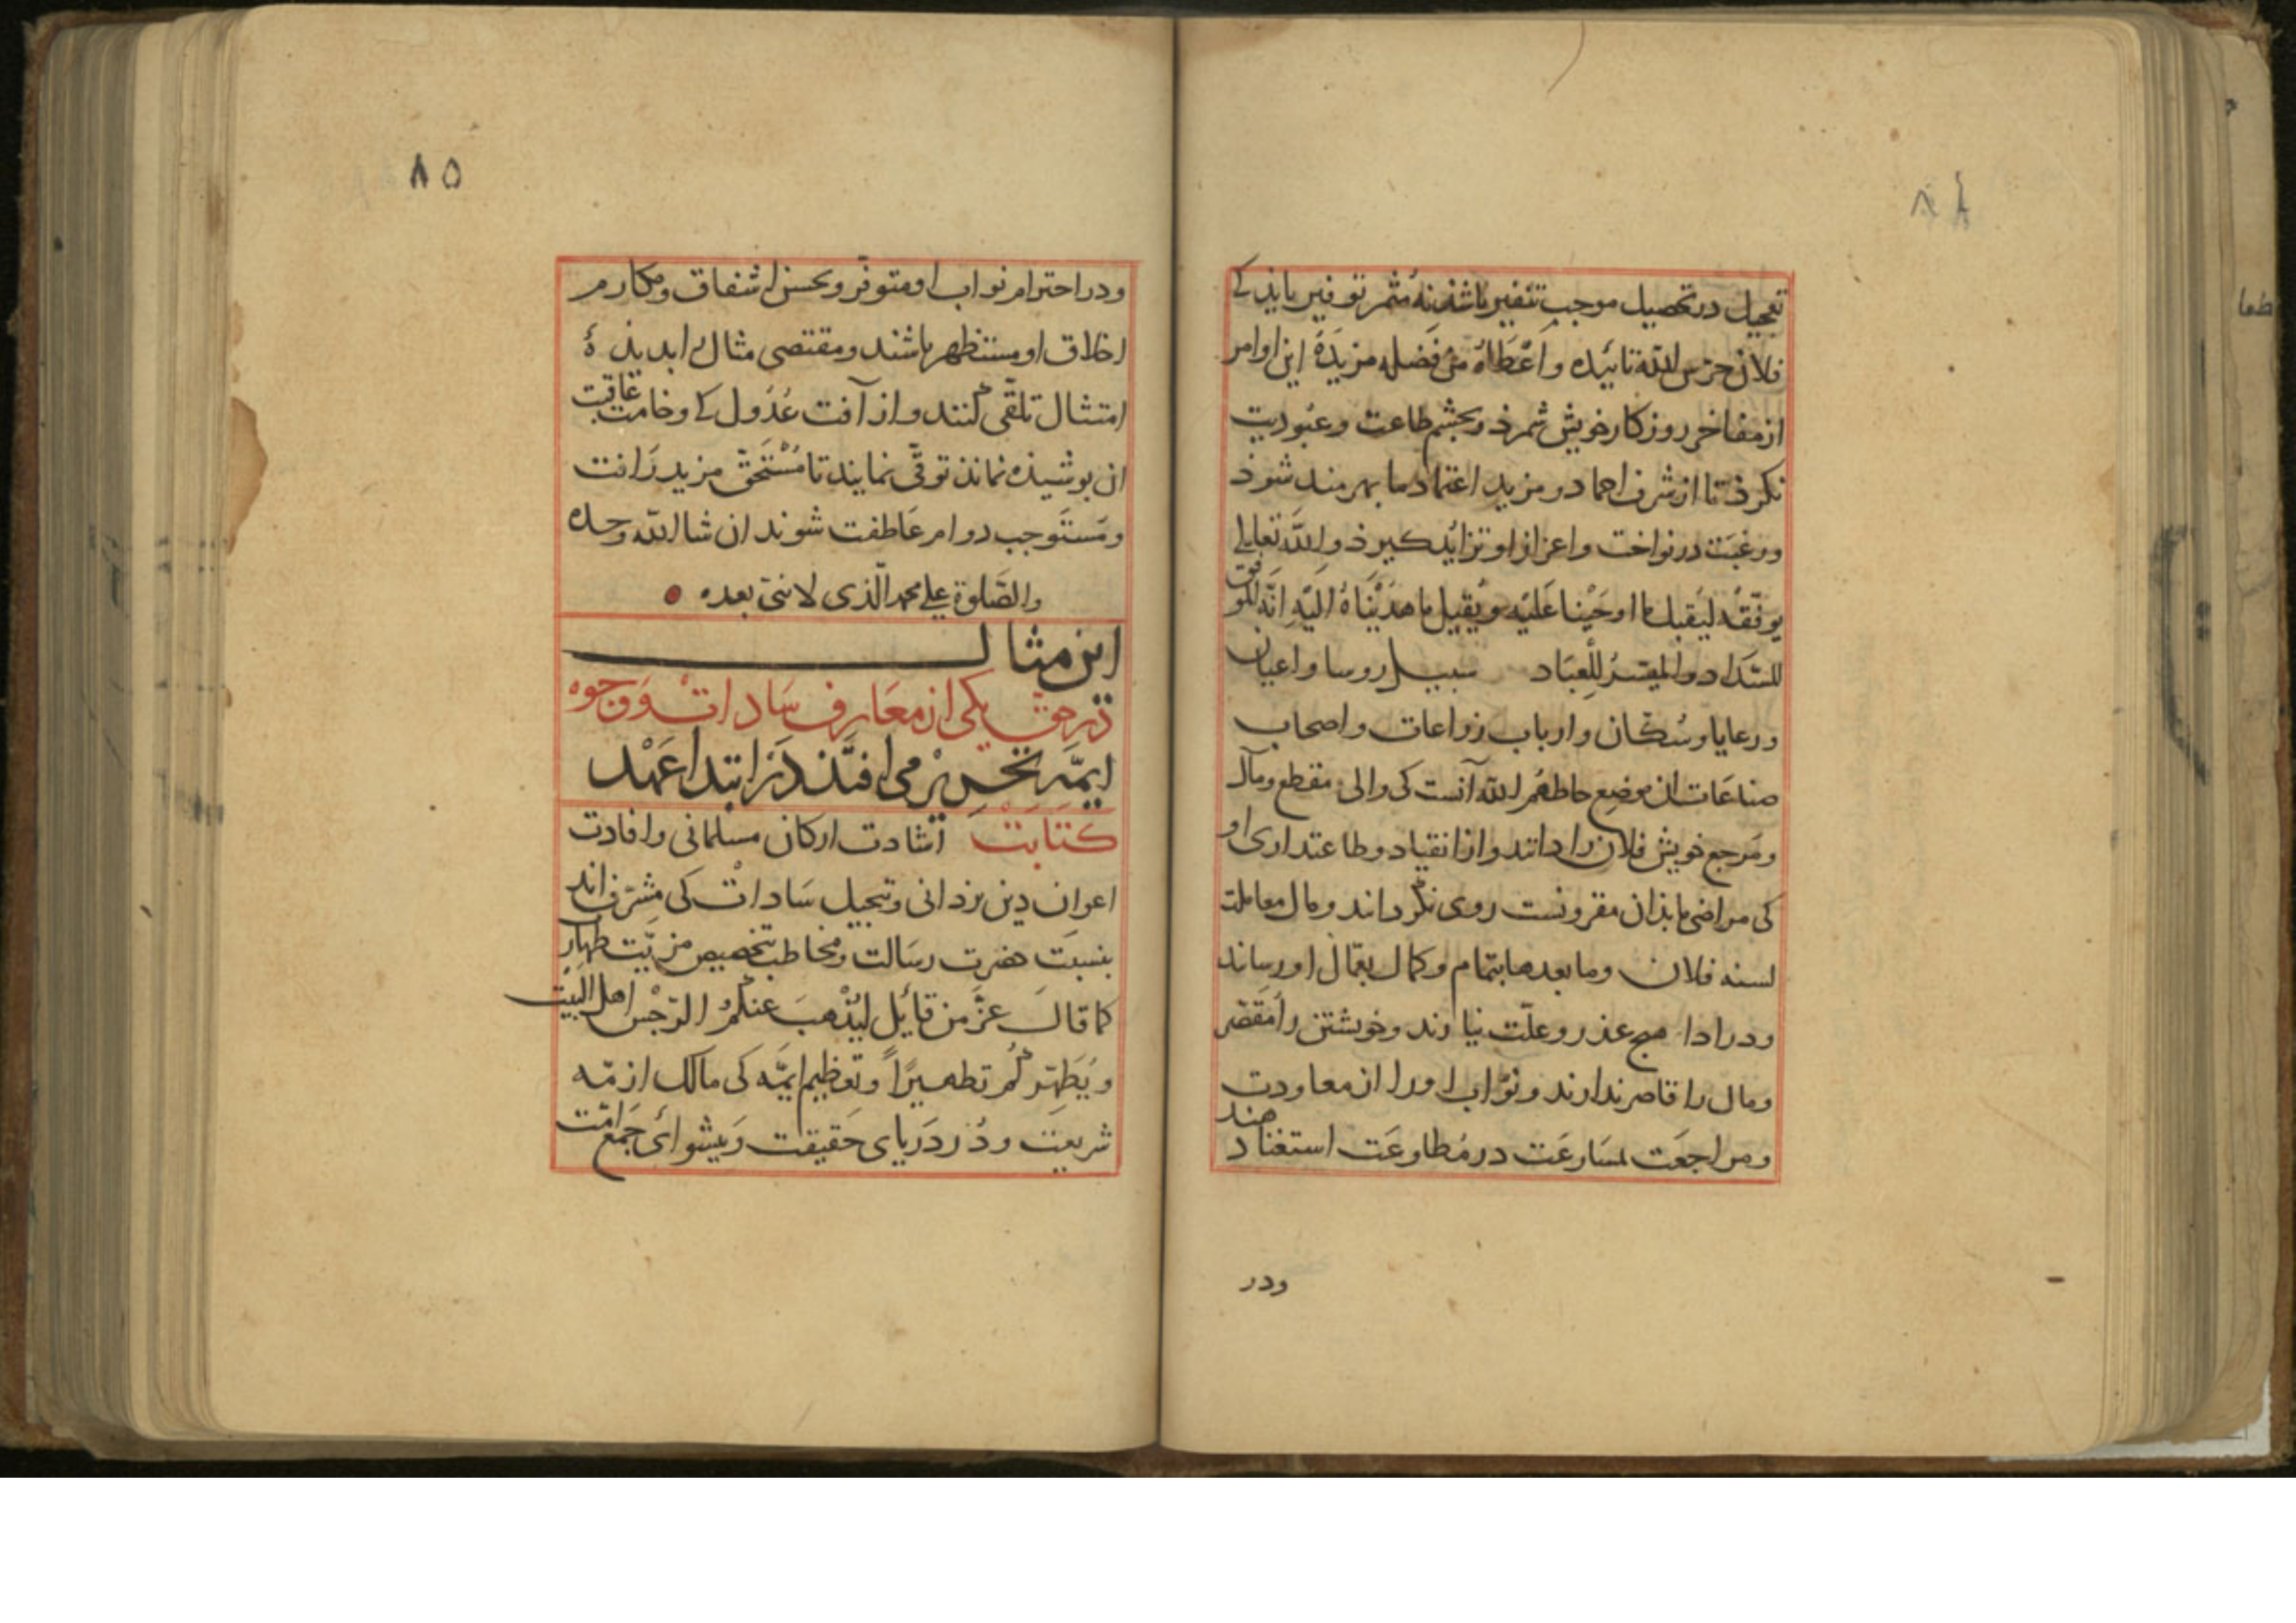 ۸۴
تعجیل در تحصیل موجب تنفیر باشذ نه مثمر توفیر بایذ کے
فلان حرس الله تائیده واعطاه من فضله مزیده این اوامر
از مفاخر روزکار خویش شمرذ وبچشم طاعت وعبودیت
نکرذ تا از شرف احماد ومزید اعتماد ما بهرمند شوذ
ورغبت در نواخت واعزاز او تزاید کیرذ والله تعالی
یوفقه لیقبل ما اوحینا علیه ویقبل ما هدیناه الیه انه الموفق
للسداد والمیسر للعباد سبیل روسا واعیان
ورعایا وسکان وارباب زراعات واصحاب
صناعات ان موضع حاطهم الله آنست کی والی ومقطع ومآل
ومرجع خویش فلان را دانند واز انقیاد وطاعتداری او
کی مراضی ما بذان مقرونست روی نکرداند ومال معاملت
لسنه فلان وما بعدها بتمام وکمال بعمال او رساند
ودر ادا هیچ عذر وعلت نیارند وخویشتن را مقصر
ومال را قاصر ندارند ونواب او را از معاودت
ومراجعت بمسارعت در مطاوعت استغنا دهند
ودر
۸۵
ودر احترام نواب او متوفر وبحسن اشفاق ومکارم
اخلاق او مستظهر باشند ومقتضی مثال را بدیذهٔ
امتثال تلقی کنند واز آفت عدول کے وخامت عاقبت
ان بوشیذه نماند توقی نمایند تا مستحق مزید رافت
ومستوجب دوام عاطفت شوند ان شا الله وحده
والصلوة علی محمد الذی لا نبی بعده
این مثال
در حق یکی از معارف سادات ووجوه
ایمه تحریر می افتد در ابتدا عهد
کتابت اشادت ارکان مسلمانی وافادت
اعوان دین یزدانی وتبجیل سادات کی مشرف اند
بنسبت حضرت رسالت ومخاطب بتخصیص مزیت طهارت
کما قال عز من قایل لیذهب عنکم الرجس اهل البیت
ویطهرکم تطهیرا وتعظیم ایمه کی مالک ازمه
شریعت ودر دریای حقیقت وپیشوائ جمع امت